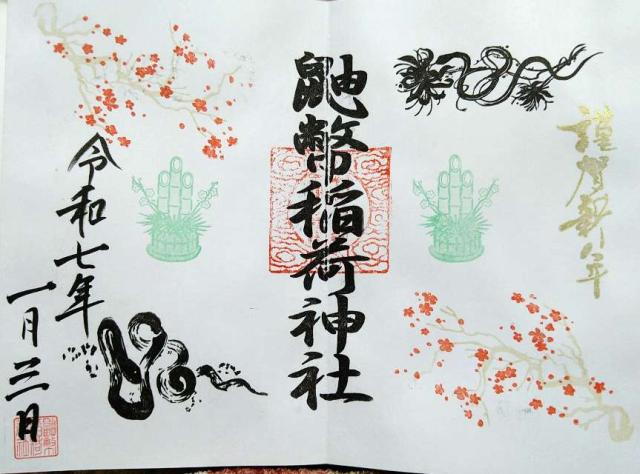 謹賀新年
鼬幣稲荷神社
令和七年
一月三日